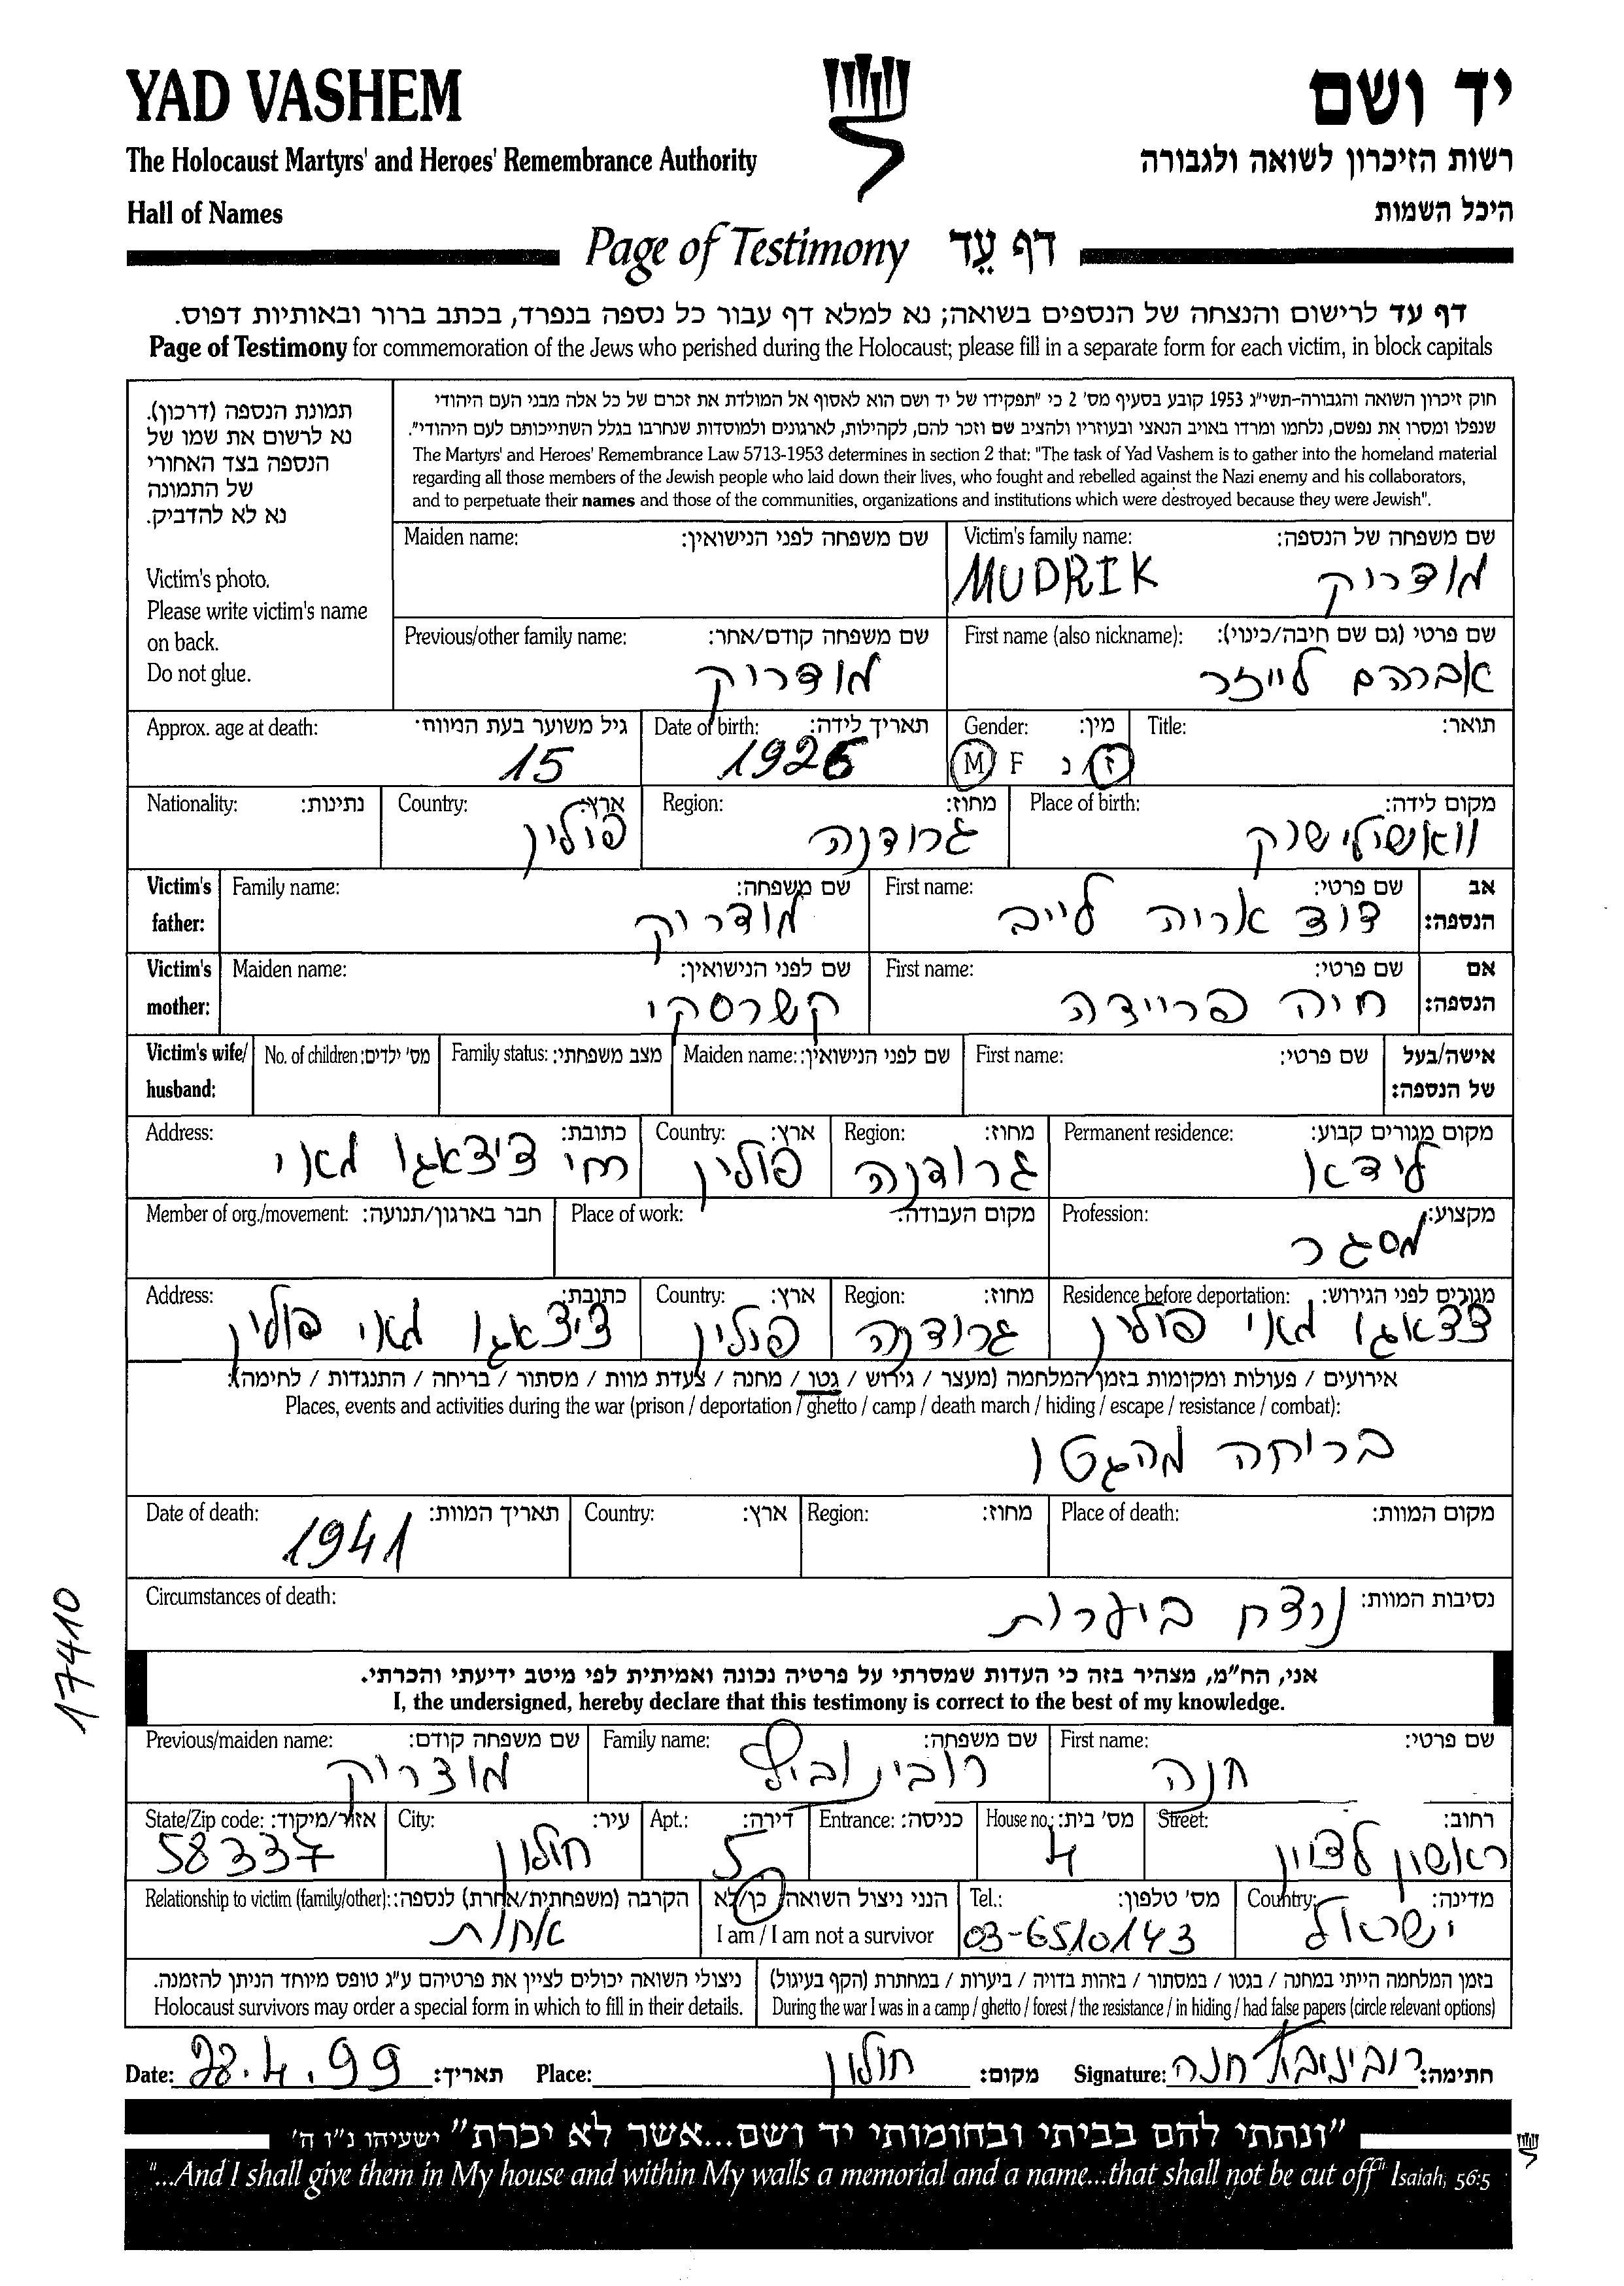 YAD VASHEM
יד ושם
The Holocaust Martyrs' and Heroes' Remembrance Authority
רשות הזיכרון לשואה ולגבורה
Hall of Names
היכל השמות
Page of Testimony דף עֵד
דף עד לרישום והנצחה של הנספים בשואה; נא למלא דף עבור כל נספה בנפרד, בכתב ברור ובאותיות דפוס.
Page of Testimony for commemoration of the Jews who perished during the Holocaust; please fill in a separate form for each victim, in block capitals
תמונת הנספה (דרכון).
נא לרשום את שמו של
הנספה בצד האחורי
של התמונה
נא לא להדביק.
Victim's photo.
Please write victim's name
on back.
Do not glue.
חוק זיכרון השואה והגבורה-תשי"ג 1953 קובע בסעיף מס' 2 כי "תפקידו של יד ושם הוא לאסוף אל המולדת את זכרם של כל אלה מבני העם היהודי
שנפלו ומסרו את נפשם, נלחמו ומרדו באויב הנאצי ובעוזריו ולהציב שם וזכר להם, לקהילות, לארגונים ולמוסדות שנחרבו בגלל השתייכותם לעם היהודי".
The Martyrs' and Heroes' Remembrance Law 5713-1953 determines in section 2 that: "The task of Yad Vashem is to gather into the homeland material
regarding all those members of the Jewish people who laid down their lives, who fought and rebelled against the Nazi enemy and his collaborators,
and to perpetuate their names and those of the communities, organizations and institutions which were destroyed because they were Jewish".
Victim's family name: שם משפחה של הנספה:
MUDRIK מודריק
Maiden name: שם משפחה לפני הנישואין:
First name (also nickname): שם פרטי (גם שם חיבה/כינוי):
אברהם לייזר
Previous/other family name: שם משפחה קודם/אחר:
מודריק
Title: תואר:
Gender: מין:
M F ז נ
Date of birth: תאריך לידה:
1926
Approx. age at death: גיל משוער בעת המוות:
15
Place of birth: מקום לידה:
וואשילישוק
Region: מחוז:
גרודנה
Country: ארץ:
פולין
Nationality: נתינות:
Victim's father: אב הנספה:
First name: שם פרטי:
דוד אריה לייב
Family name: שם משפחה:
מודריק
Victim's mother: אם הנספה:
First name: שם פרטי:
חיה פריידה
Maiden name: שם לפני הנישואין:
קשרסקי
Victim's wife/ husband: אישה/בעל של הנספה:
First name: שם פרטי:
Maiden name: שם לפני הנישואין:
Family status: מצב משפחתי:
No. of children: מס' ילדים:
Permanent residence: מקום מגורים קבוע:
לידאו
Region: מחוז:
גרודנה
Country: ארץ:
פולין
Address: כתובת:
מאי
Profession: מקצוע:
מסגר
Place of work: מקום העבודה:
Member of org./movement: חבר בארגון/תנועה:
Residence before deportation: מגורים לפני הגירוש:
מאי פולין
Region: מחוז:
גרודנה
Country: ארץ:
פולין
Address: כתובת:
מאי פולין
אירועים / פעולות ומקומות בזמן המלחמה (מעצר / גירוש / גטו / מחנה / צעדת מוות / מסתור / בריחה / התנגדות / לחימה):
Places, events and activities during the war (prison / deportation / ghetto / camp / death march / hiding / escape / resistance / combat):
בריחה מהגטו
Place of death: מקום המוות:
Region: מחוז:
Country: ארץ:
Date of death: תאריך המוות:
1941
Circumstances of death: נסיבות המוות:
נרצח ביערות
17410
אני, הח"מ, מצהיר בזה כי העדות שמסרתי על פרטיה נכונה ואמיתית לפי מיטב ידיעתי והכרתי.
I, the undersigned, hereby declare that this testimony is correct to the best of my knowledge.
First name: שם פרטי:
חנה
Family name: שם משפחה:
רובינוביץ
Previous/maiden name: שם משפחה קודם:
מודריק
Street: רחוב:
ראשון לציון
House no.: מס' בית:
4
Entrance: כניסה:
Apt.: דירה:
5
City: עיר:
חולון
State/Zip code: אזור/מיקוד:
58337
Country: מדינה:
ישראל
Tel.: מס' טלפון:
03-6510143
הנני ניצול השואה כן/לא
I am / I am not a survivor
Relationship to victim (family/other): הקרבה (משפחתית/אחרת) לנספה:
אחות
בזמן המלחמה הייתי במחנה / בגטו / במסתור / בזהות בדויה / ביערות / במחתרת (הקף בעיגול)
During the war I was in a camp / ghetto / forest / the resistance / in hiding / had false papers (circle relevant options)
ניצולי השואה יכולים לציין את פרטיהם ע"ג טופס מיוחד הניתן להזמנה.
Holocaust survivors may order a special form in which to fill in their details.
Date: 28.4.99 תאריך: Place: חולון מקום: Signature: רובינוביץ חנה חתימה:
"ונתתי להם בביתי ובחומותי יד ושם...אשר לא יכרת" ישעיהו נ"ו ה'
"...And I shall give them in My house and within My walls a memorial and a name...that shall not be cut off" Isaiah, 56:5